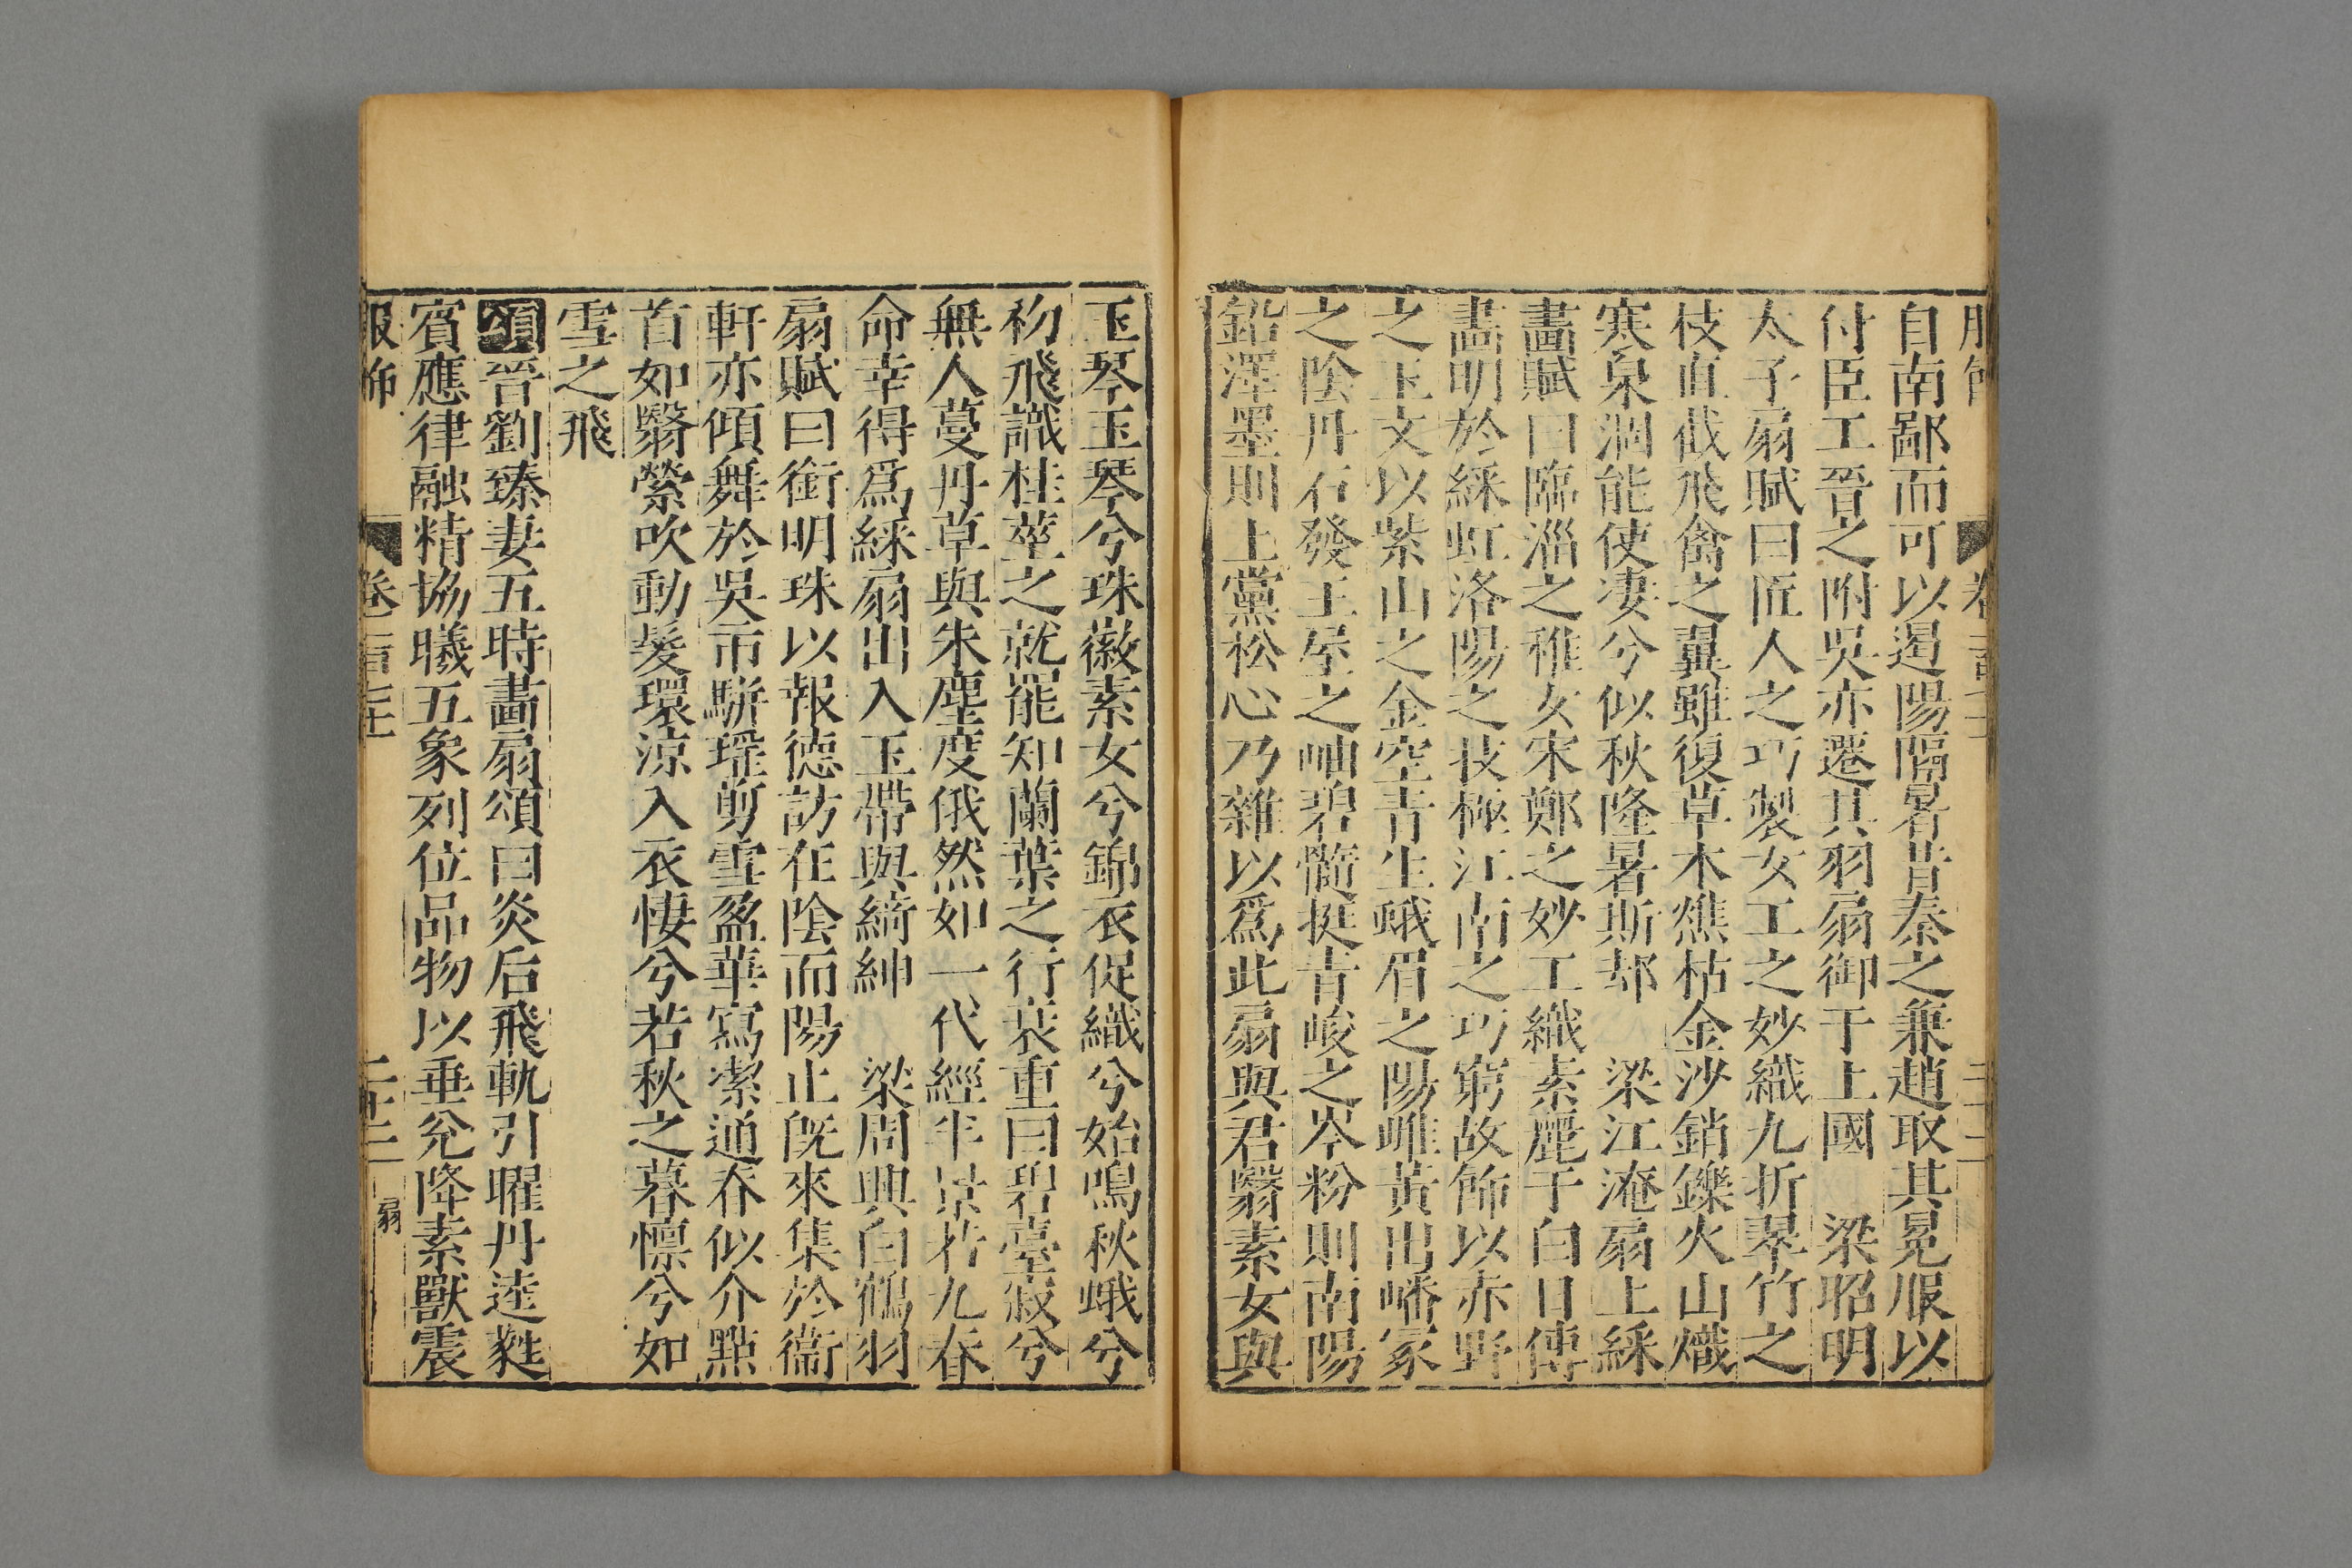 服飾 卷一百二十
自南鄙而可以遏陽隔暑昔秦之兼趙取其冕服以
付臣工晉之附吳亦遷其羽扇御于上國 梁昭明
太子扇賦曰匠人之巧製女工之妙織九折翠竹之
枝直截飛禽之翼雖復草木燋枯金沙銷鑠火山熾
寒泉涸能使凄兮似秋隆暑斯却 梁江淹扇上綵
畫賦曰臨淄之稚女宋鄭之妙工織素麗于白日傳
畫明於綵虹洛陽之技極江南之巧窮故飾以赤野
之玉文以紫山之金空青生峨眉之陽雌黃出嶓冢
之陰丹石發王屋之岫碧髓挺青崚之岑粉則南陽
鉛澤墨則上黨松心乃雜以爲此扇與君翳素女與
玉琴玉琴兮珠徽素女兮錦衣促織兮始鳴秋蛾兮
初飛識桂莖之就罷知蘭葉之行衰重曰碧臺寂兮
無人蔓丹草與朱塵度俄然如一代經半景若九春
命幸得爲綵扇出入玉帶與綺紳 梁周興白鶴羽
扇賦曰銜明珠以報德訪在陰而陽止旣來集於衞
軒亦傾舞於吳市駢璀剪雪盈華寫潔通春似介點
首如翳縈吹動髮環涼入衣悽兮若秋之暮懍兮如
雪之飛
頌晉劉臻妻五時畫扇頌曰炎后飛軌引曜丹逵蕤
賓應律融精協曦五象列位品物以垂兊降素獸震
服飾 卷一百二十 二十三 扇